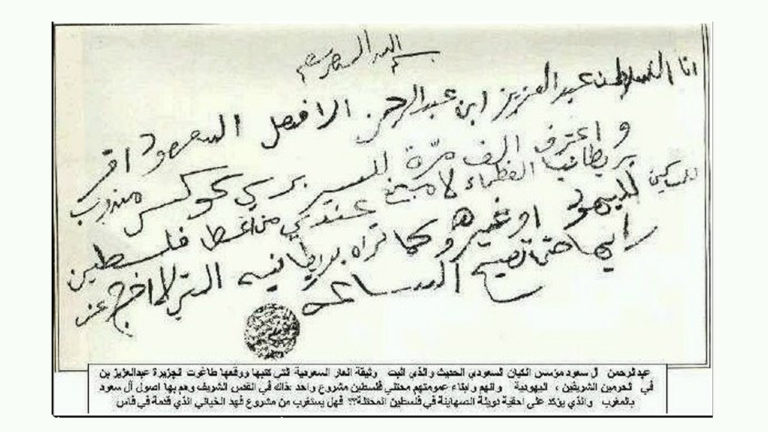 بسم الله الرحمن الرحيم
انا السلطان عبدالعزيز ابن عبدالرحمن الافصل السعود اقر
واعترف الف مرّة للسير برسي كوكس مندوب
بريطانيا العظماء لا مانع عندي من اعطا فلسطين
للمساكين لليهود او غيرهم وكما تراه بريطانيه التي لا اخرج عن
رايها حتى تصيح الساعه
عبدالرحمن آل سعود مؤسس الكيان السعودي الحديث والذي أثبت وثيقة العار السعودية التي كتبها ووقعها طاغوت الجزيرة عبدالعزيز بن
في الحرمين الشريفين ، اليهودية وانهم وابناء عمومتهم محتلي فلسطين مشروع واحد ،ذاك في القدس الشريف وهم بها اصول آل سعود
بالمغرب والذي يؤكد على احقية دويلة الصهاينة في فلسطين المحتلة؟؟ فهل يستغرب من مشروع فهد الخياني الذي قدمة في فاس